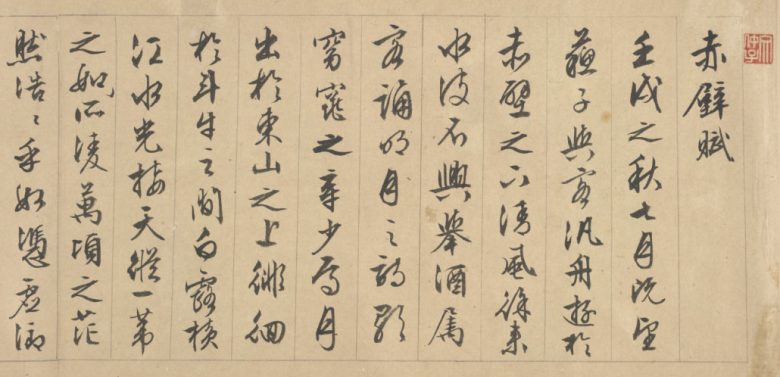 赤壁賦
壬戌之秋七月既望
蘇子與客汎舟遊於
赤壁之下清風徐來
水波不興舉酒屬
客誦明月之詩歌
窈窕之章少焉月
出於東山之上徘徊
於斗牛之間白露横
江水光接天縱一葦
之如所淩萬頃之茫
然浩〻乎如憑虚御